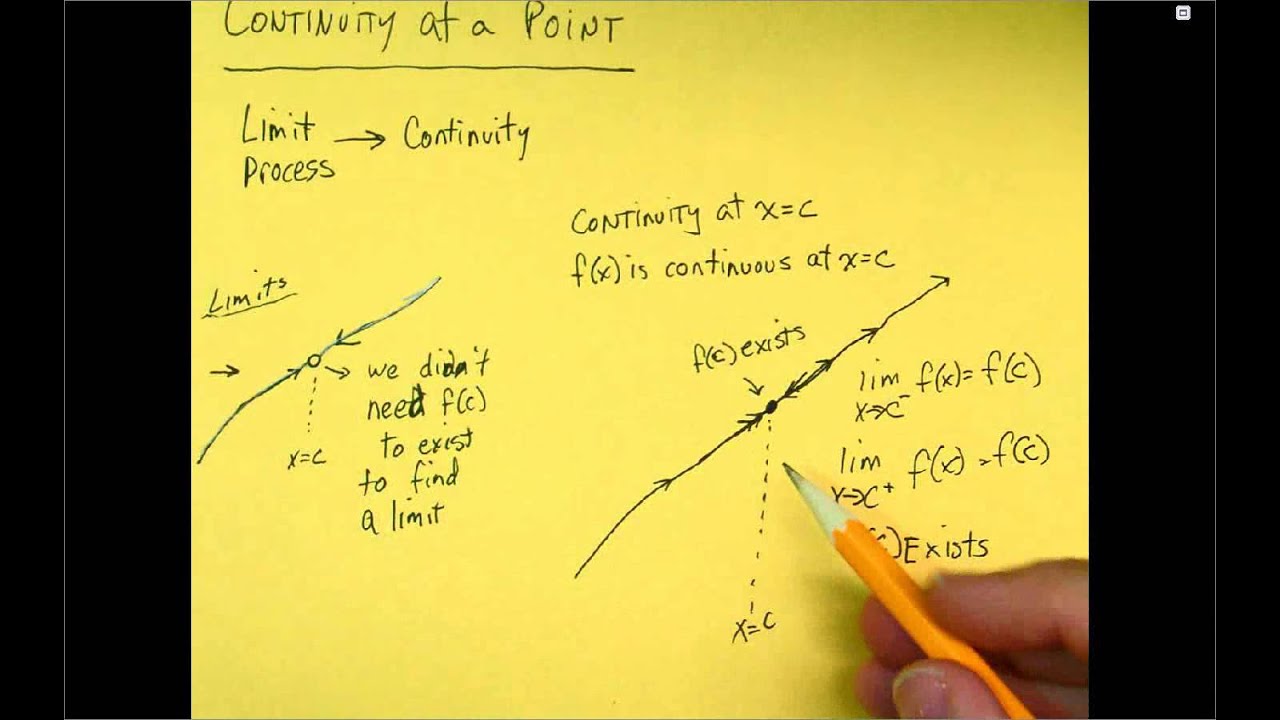 CONTINUITY at a POINT
Limit → Continuity
Process
CONTINUITY at x=c
f(x) is continuous at x=c
Limits
f(c) exists
→ we didn't
need f(c)
to exist
to find
a limit
x=c
lim f(x) = f(c)
x→c⁻
lim f(x) = f(c)
x→c⁺
c) Exists
x=c